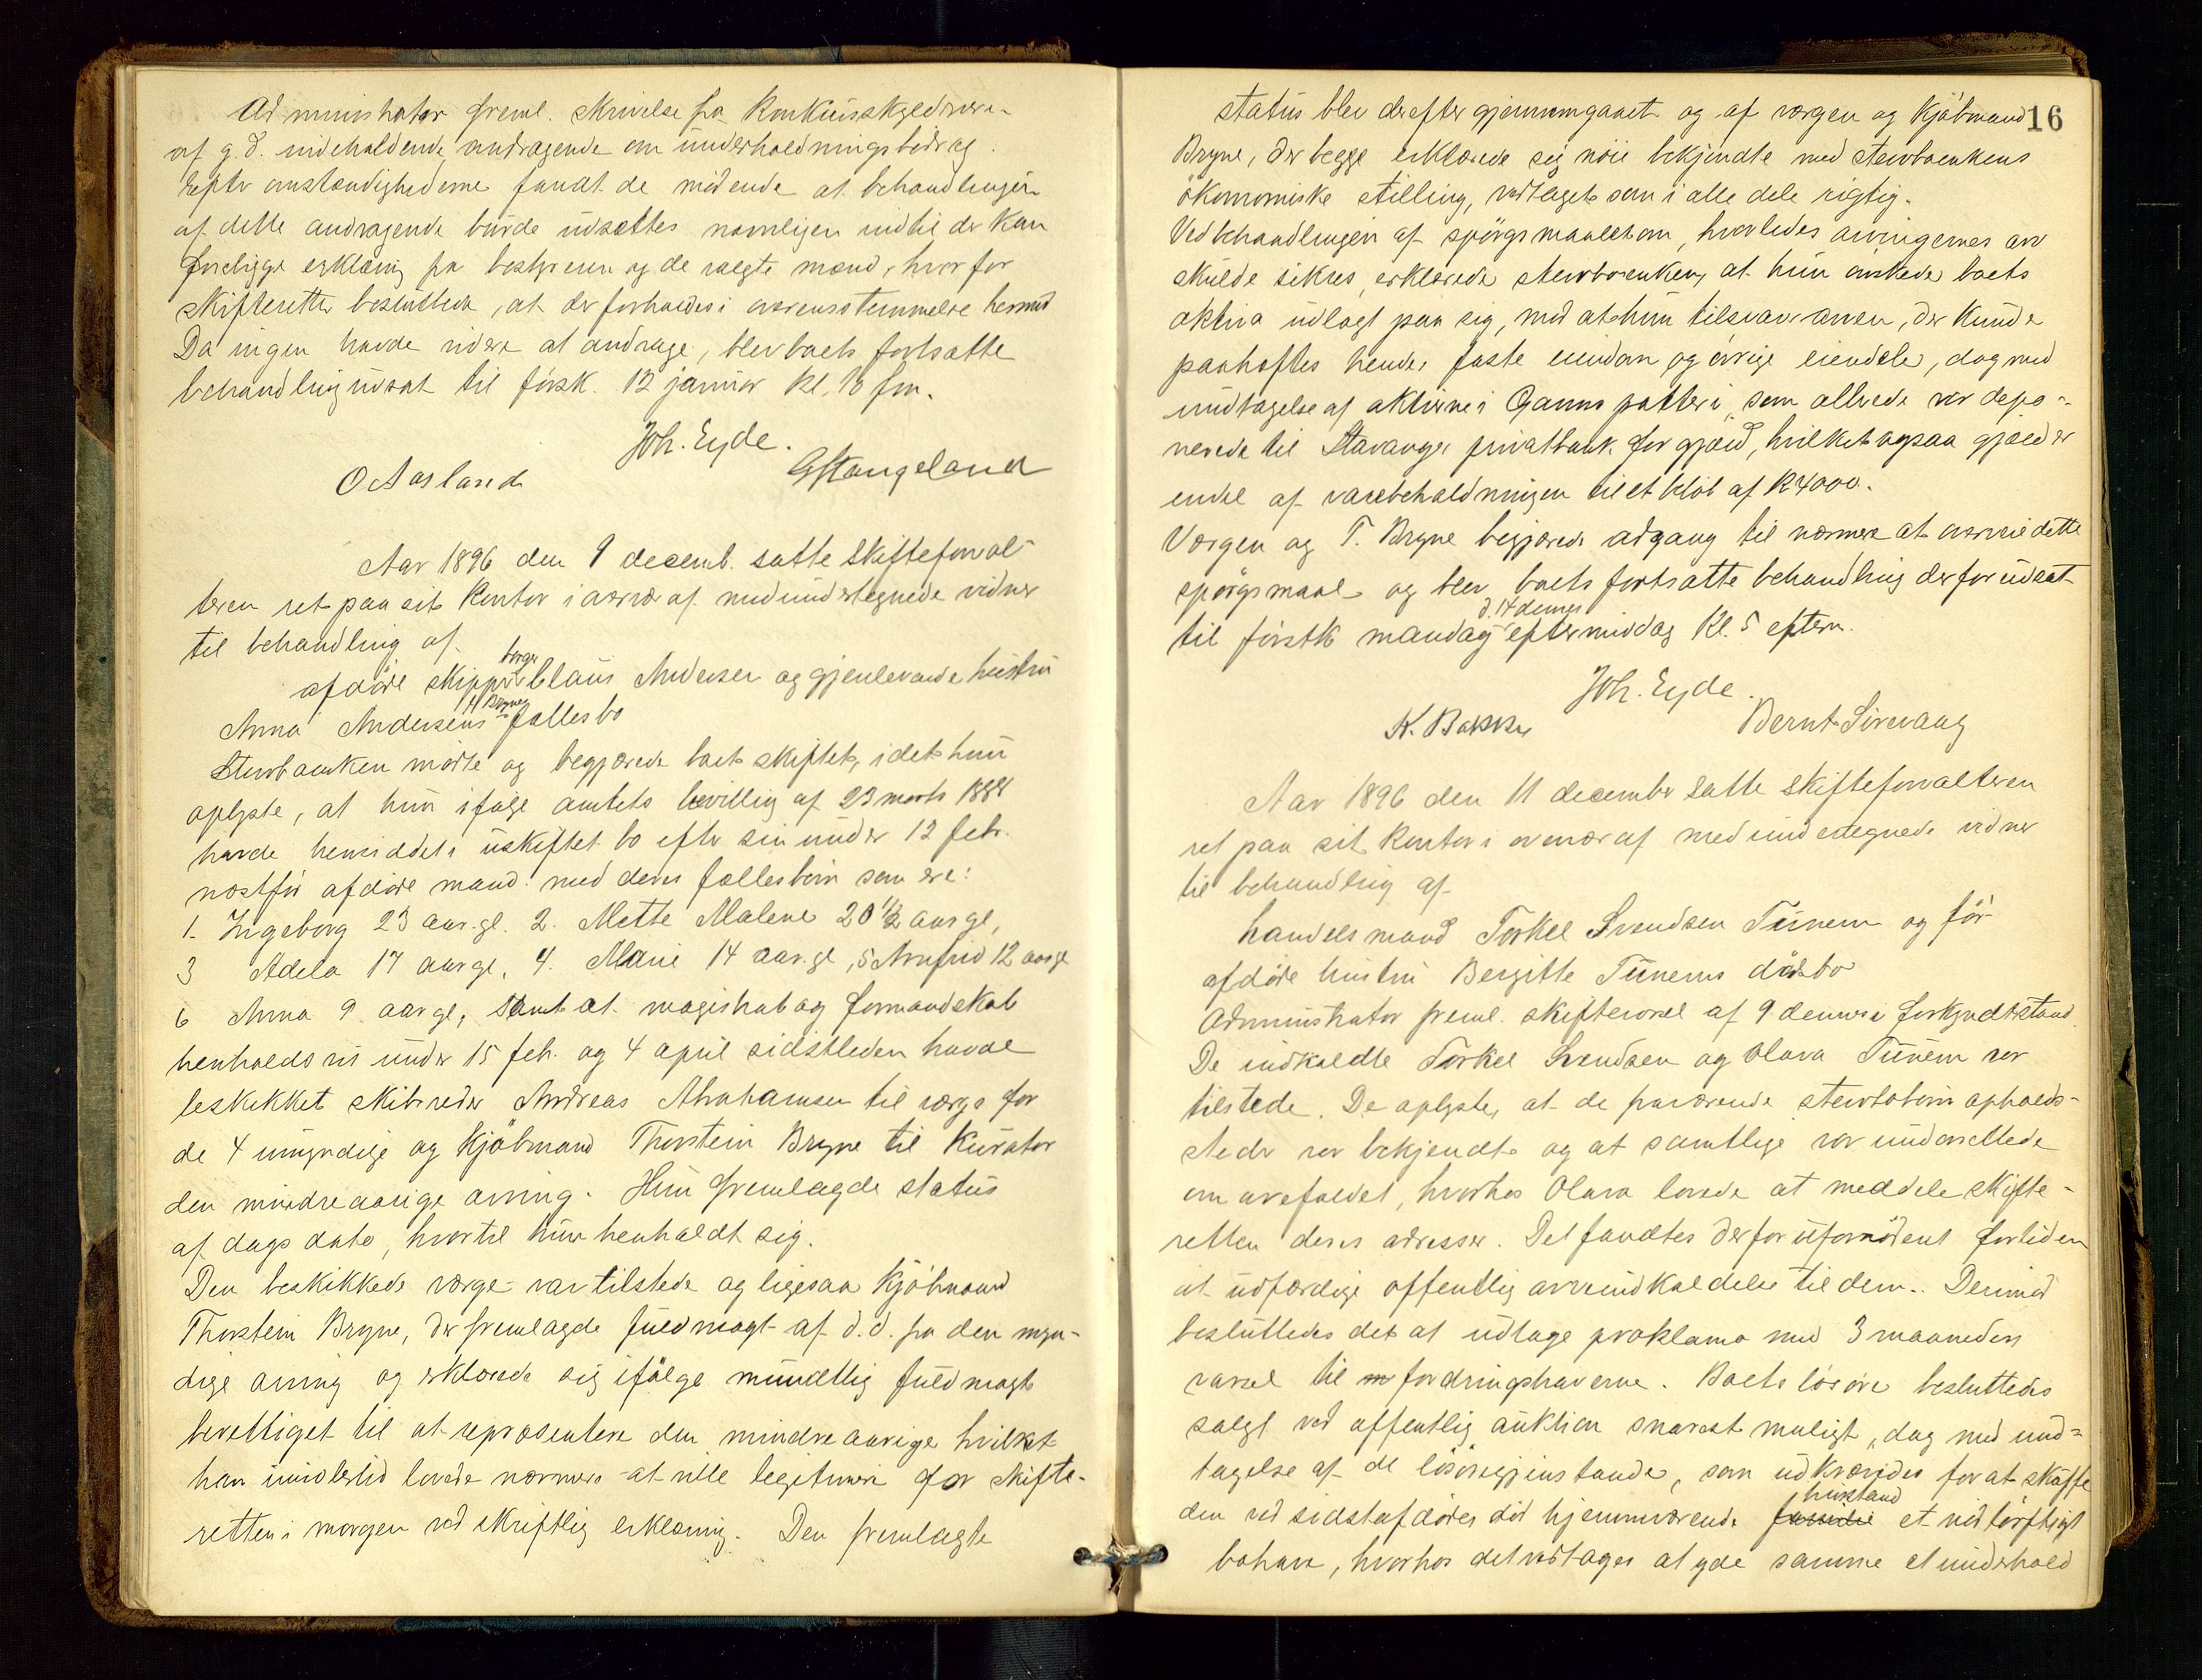 Administrator freml. skrivelse fra konkursskyldneren
af g. d. indeholdende andragende om underholdningsbidrag.
Efter omstændighederne fandt de mødende at behandlingen
af dette andragende burde udsættes nemligen indtil der kan
foreligge erklæring fra bestyreren og de valgte mænd, hvorfor
skifteretten besluttede, at der forholdes i overensstemmelse hermed
Da ingen havde videre at andrage, blev boets fortsatte
behandling udsat til førstk. 12 januar kl. 10 fm.
Joh. Eyde.
O Aasland
G Stangeland
Aar 1896 den 9 decemb. satte skifteforval-
teren ret paa sit kontor i overvær af medundertegnede vidner
til behandling af
afdøde skipper Børge Claus Andersen og gjenlevende hustru
Anna Andersens f. Brynes fællesbo
Stervboenken mødte og begjærede boet skiftet, idet hun
oplyste, at hun ifølge amtets bevilling af 23 marts 1888
havde hensiddet i uskiftet bo efter sin under 12 febr.
næstfør afdøde mand med deres fællesbørn som ere:
1. Ingeborg 23 aar gl. 2. Mette Malene 20 1/2 aar gl,
3 Adela 17 aar gl, 4. Marie 14 aar gl, 5 Arnfrid 12 aar gl
6 Anna 9 aar gl, samt at magistrat og formandskab
henholdsvis under 15 febr. og 4 april sidstleden havde
beskikket skibsreder Andreas Abrahamsen til værge for
de 4 umyndige og kjøbmand Thorstein Bryne til kurator
den mindreaarige arving. Hun fremlagde status
af dags dato, hvortil hun henholdt sig.
Den beskikkede værge var tilstede og ligesaa kjøbmand
Thorstein Bryne, der fremlagde fuldmagt af d. d. fra den myn-
dige arving og erklærede sig ifølge mundtlig fuldmagt
berettiget til at repræsentere den mindreaarige hvilket
han imidlertid lovede nærmere at ville legitimere for skifte-
retten i morgen ved skriftlig erklæring. Den fremlagte
16
status blev derefter gjennemgaaet og af værgen og kjøbmand
Bryne, der begge erklærede sig nøie bekjendte med stervboenkens
økonomiske stilling, vedtaget som i alle dele rigtig.
Ved behandlingen af spørgsmaalet om, hvorledes arvingernes arv
skulde sikres, erklærede stervboenken, at hun ønskede boets
aktiva udlagt paa sig, mod at hun tilsvarer arven, der kunde
paaheftes hendes faste eiendom og øvrige eiendele, dog med
undtagelse af aktierne i Ganns potteri, som allerede var depo-
nerede til Stavanger privatbank for gjæld, hvilket ogsaa gjælder
endel af varebeholdningen til et beløb af K 4000.
Værgen og T. Bryne begjærede adgang til nærmere at overveie dette
spørgsmaal og blev boets fortsatte behandling derfor udsat
til førstk mandag d. 14 dennes eftermiddag kl. 5 efterm.
Joh. Eyde.
K. Bakke
Bernt Sirevaag
Aar 1896 den 11 december satte skifteforvalteren
ret paa sit kontor i overvær af medundertegnede vidner
til behandling af
handelsmand Torkel Svendsen Tunem og før
afdøde hustru Bergitte Tunems dødsbo
Administrator freml. skiftevarsel af 9 dennes i forkyndt stand.
De indkaldte Torkel Svendsen og Olava Tunem var
tilstede. De oplyste, at de fraværende stervbobørns opholds-
steder var bekjendte og at samtlige var underrettede
om arvefaldet, hvorhos Olava lovede at meddele skifte-
retten deres adresser. Det fandtes derfor ufornødent for tiden
at udfærdige offentlig arveindkaldelse til dem. Derimod
besluttedes det at udtage proklama med 3 maaneders
varsel til fordringshaverne. Boets løsøre besluttedes
solgt ved offentlig auktion snarest muligt, dog med und-
tagelse af de løsøregjenstande, som udkrævedes for at skaffe
den ved sidstafdødes død hjemmeværende familie husstand et nødtørftigt
bohave, hvorhos det vedtages at yde samme et underhold